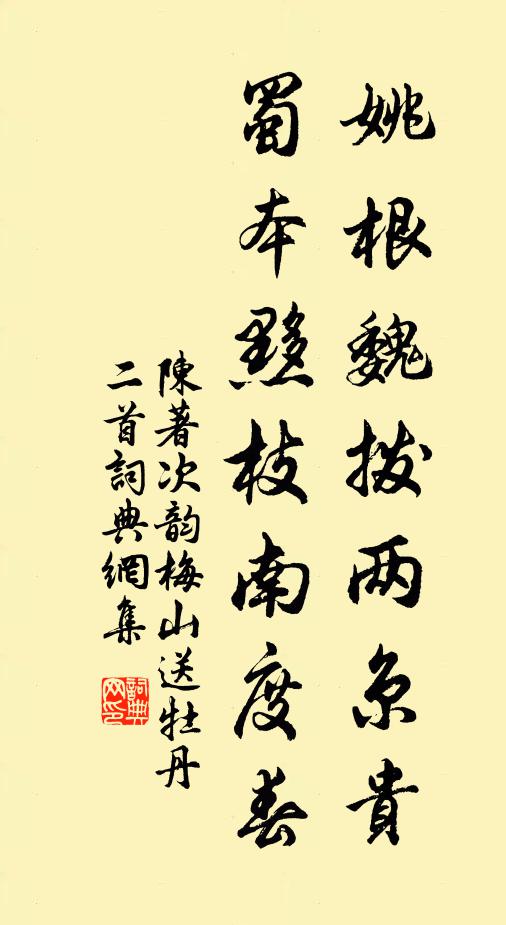 姚根魏拨两京貴
蜀本黟枝南度春
陳著次韵梅山送牡丹
二首詞典網集
詞典
网印